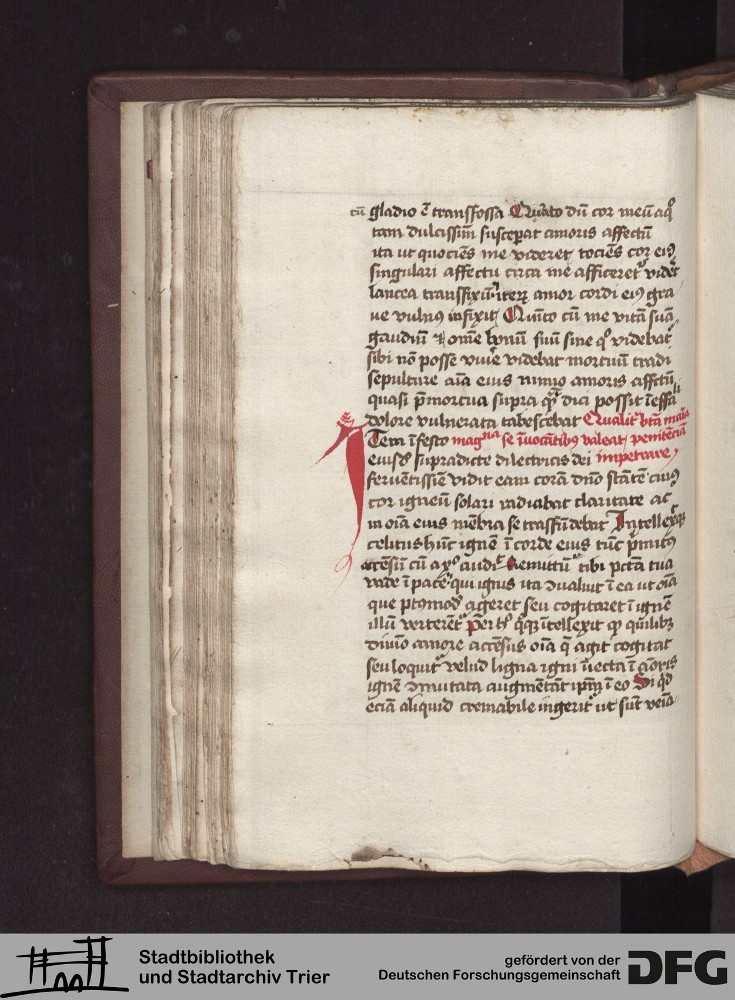 cū gladio ē transfossa Quarto dū cor meū aqͦ
tam dulcissim̄ susceperat amoris affectū
ita ut quociēs me videret, tociēs cor eiꝰ
singulari affectu circa me afficeret᷑ videt᷑
lancea transfixū iterū amor cordi eiꝰ gra
ue vulnꝰ infixit, Quīto cū me vitā suā
gaudiū & om̄e bonū suū sine qͦ videbat᷑
sibi nō posse viuͤe videbat mortuū tradi
sepulture aīa eius nimio amoris affectu
quasi p̄mortua supra qͣꝫ dici possit īeffa
bili
dolore vulnerata tabescebat Qualit᷑ btā maria
magna se īuocātibꝰ valeat, penitēciā
impetrare,
Item ī festo
eiusdē supradicte dilectricis dei
feruētissīe vidit eam corā dn̄o stātē cuiꝰ
cor igneū solari radiabat claritate ac
in oīa eius mēbra se trāsfūdebat Intellexitqꝫ
celitus hūc ignē ī corde eius tūc p̄mitꝰ
accēsū cū a xp̄o audiͤt Remittūt᷑ tibi pctā tua
vade ī pace qui ignis ita ꝯualuit ī ea ut oīa
que ptꝰmodū ageret seu cogitaret ī ignē
illū verteret᷑ Per hͦ qͦqꝫ ītellexit qꝫ quilibꝫ
diuīo amore accēsus oīa q̄ agit cogitat
seu loquit᷑ velud ligna igni īiecta ī amoris
ignē ꝯmutata augmētāt ipm̄ ī eo Si qͥd
eciā aliquid cremabile ingerit᷑ ut sūt veīa
Stadtbibliothek
und Stadtarchiv Trier
gefördert von der
Deutschen Forschungsgemeinschaft
DFG